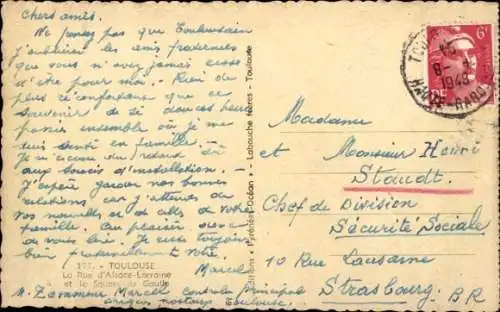 Chers amis.
Ne pensez pas que Toulousain
j'oublierai les amis fraternels
que vous n'avez jamais cessé
d'être pour moi. - Rien de
plus réconfortant que ce
souvenir de ces douces heures
passées ensemble où je me
suis senti en famille.
Je m'excuse du retard dû
aux soucis d'installation. -
J'espère garder nos bonnes
relations car j'attends de
vos nouvelles et de celles de votre
famille. Au plaisir donc
de vous lire. Je suis toujours
fraternellement vôtre.
Marcel
177. - TOULOUSE
La Rue d'Alsace-Lorraine
et le Square de Gaulle
M. Marcel Contrôleur Principal
Toulouse.
Éditions "Pyrénées-Océan" - Labouche frères - Toulouse
6F
RF
TOULOUSE
8 -
1948
HAUTE-GARONNE
Madame
et Monsieur Henri
Staudt.
Chef de Division
Sécurité Sociale
10 Rue Lausanne
Strasbourg. B.R